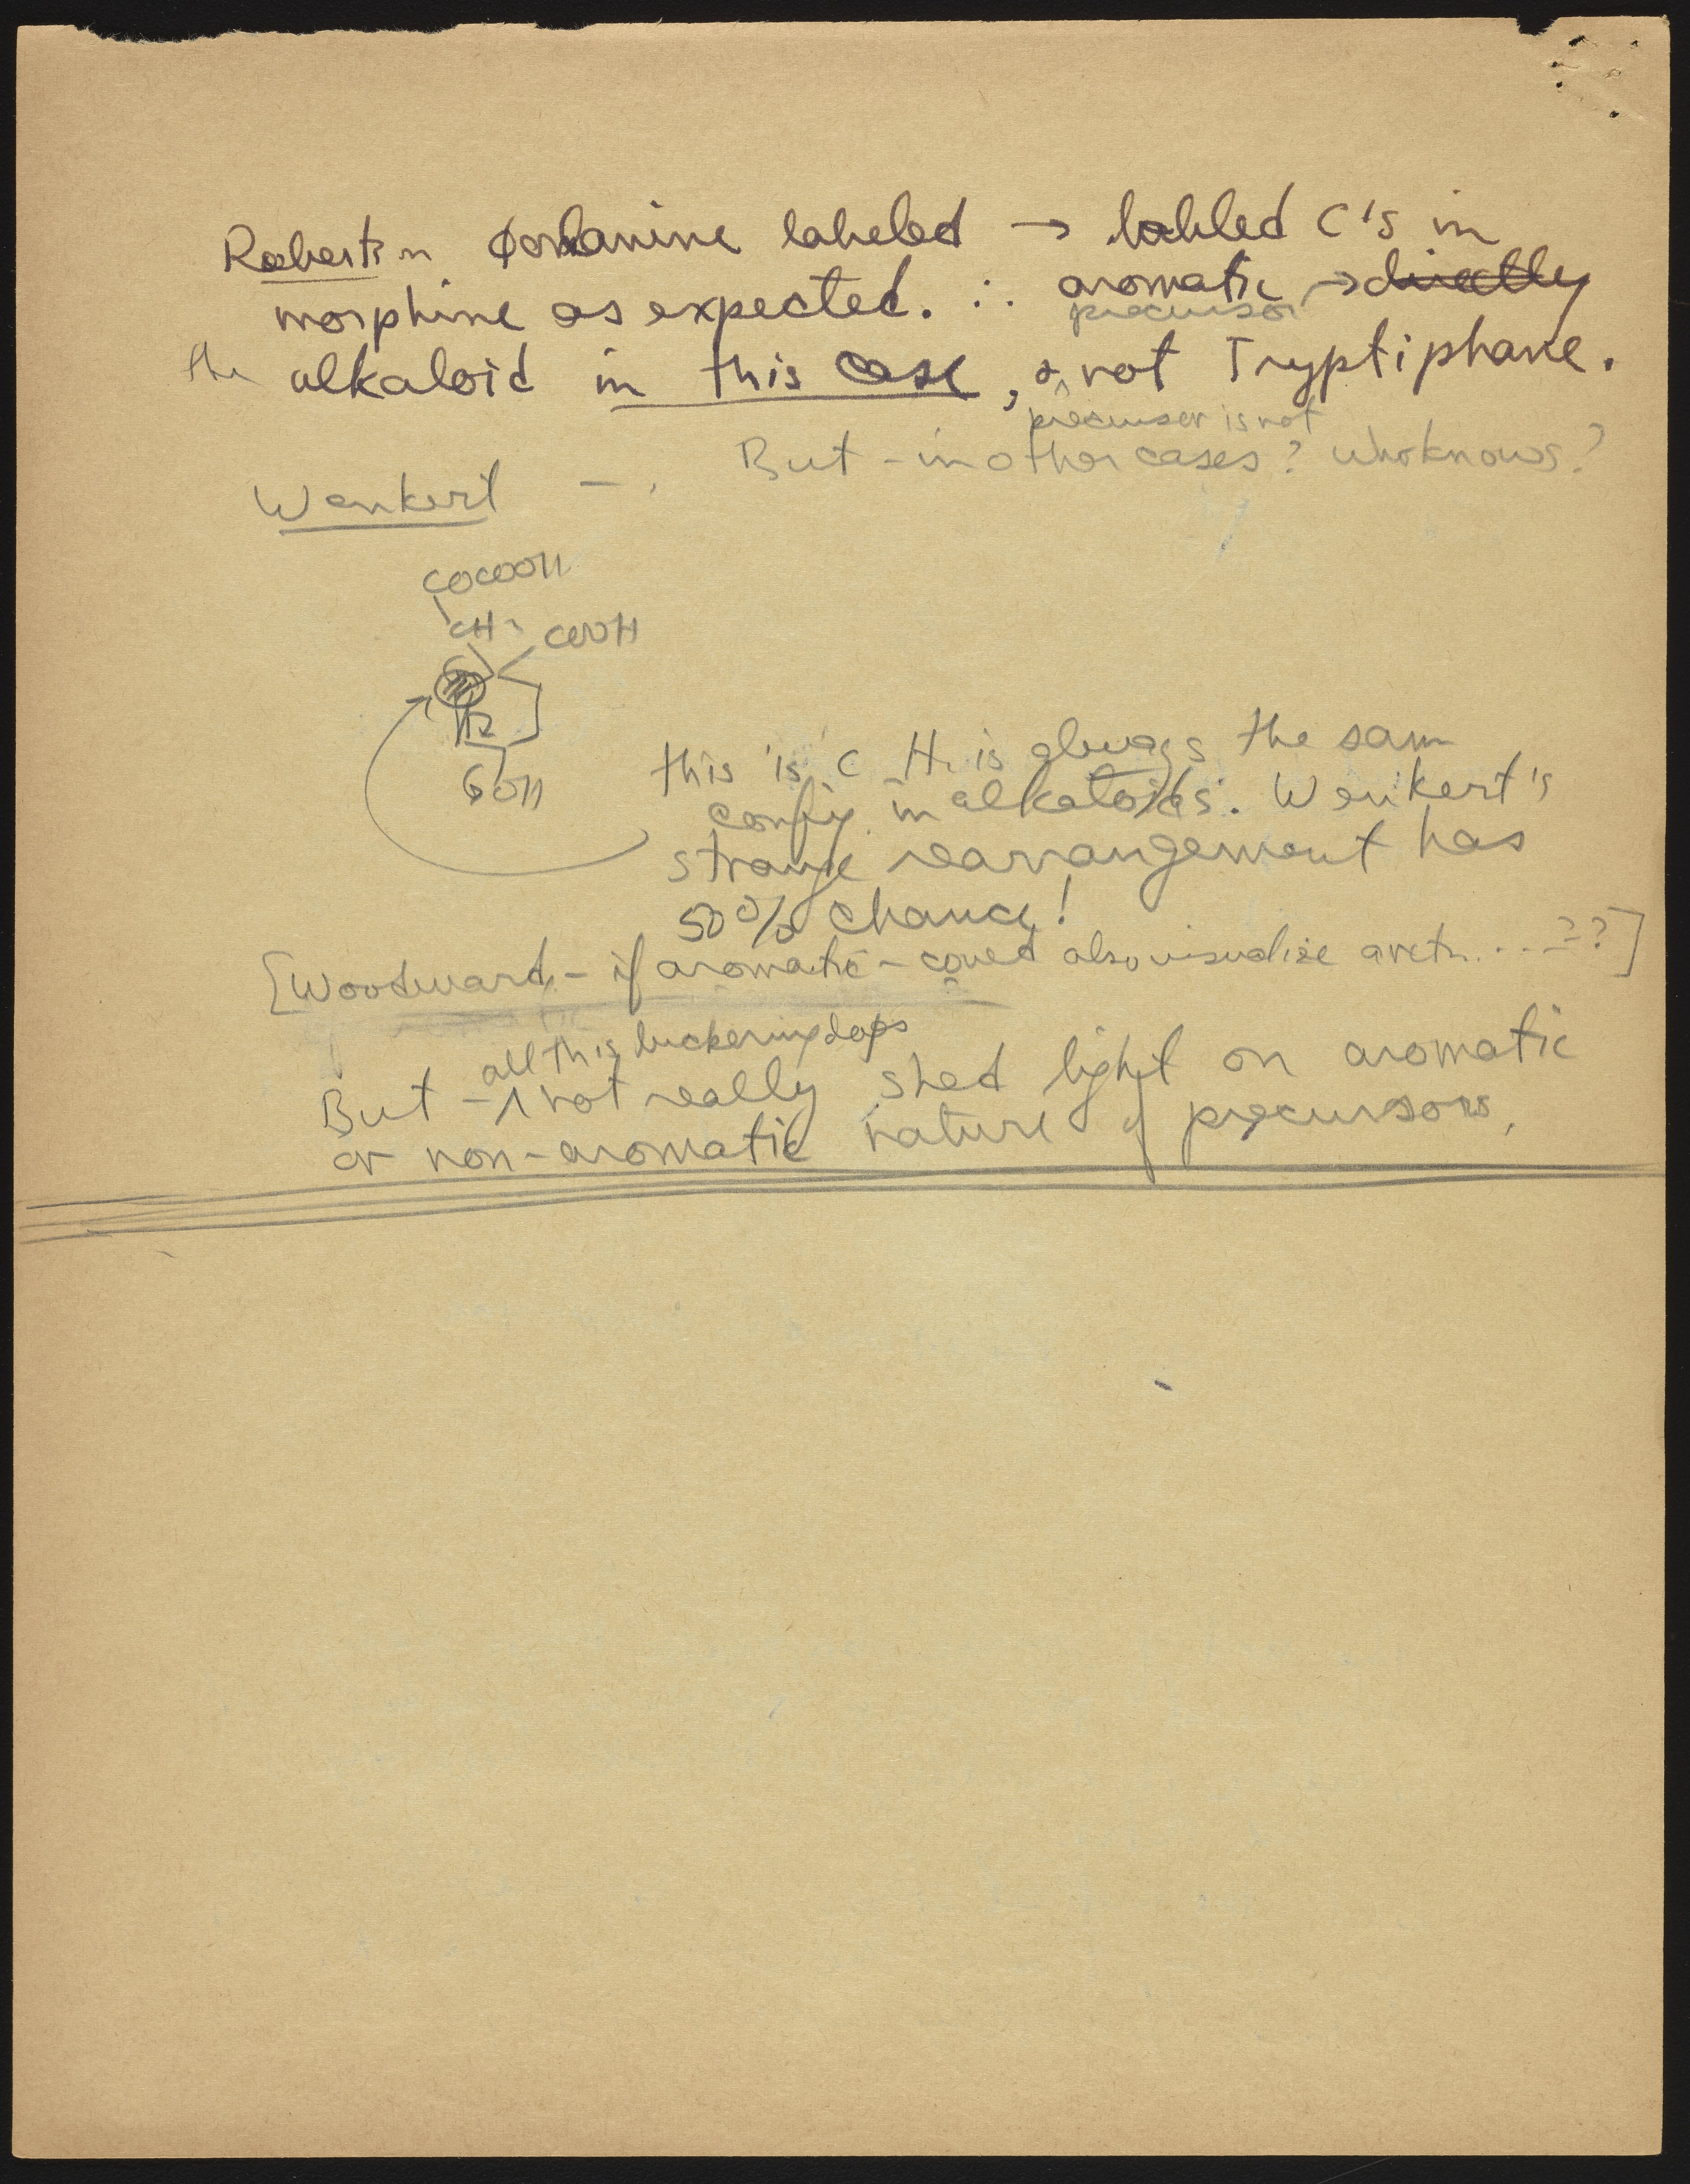 Robertson ϕalanine labeled → labled C's in
morphine as expected. ∴ aromatic → directly
precursor
the alkaloid in this case, & not Tryptiphane.
precurser is not
But - in other cases? who knows?
Wenkert -
COCOOH
CH₂ COOH
H₂
OH
this is C H. is always the same
config. in alkaloids. Wenkert's
strange rearrangement has
50% chance!
[Woodward - if aromatic - could also visualize a retr. . . . ??]
all this
But - not really shed light on aromatic
or non-aromatic nature of precursors.